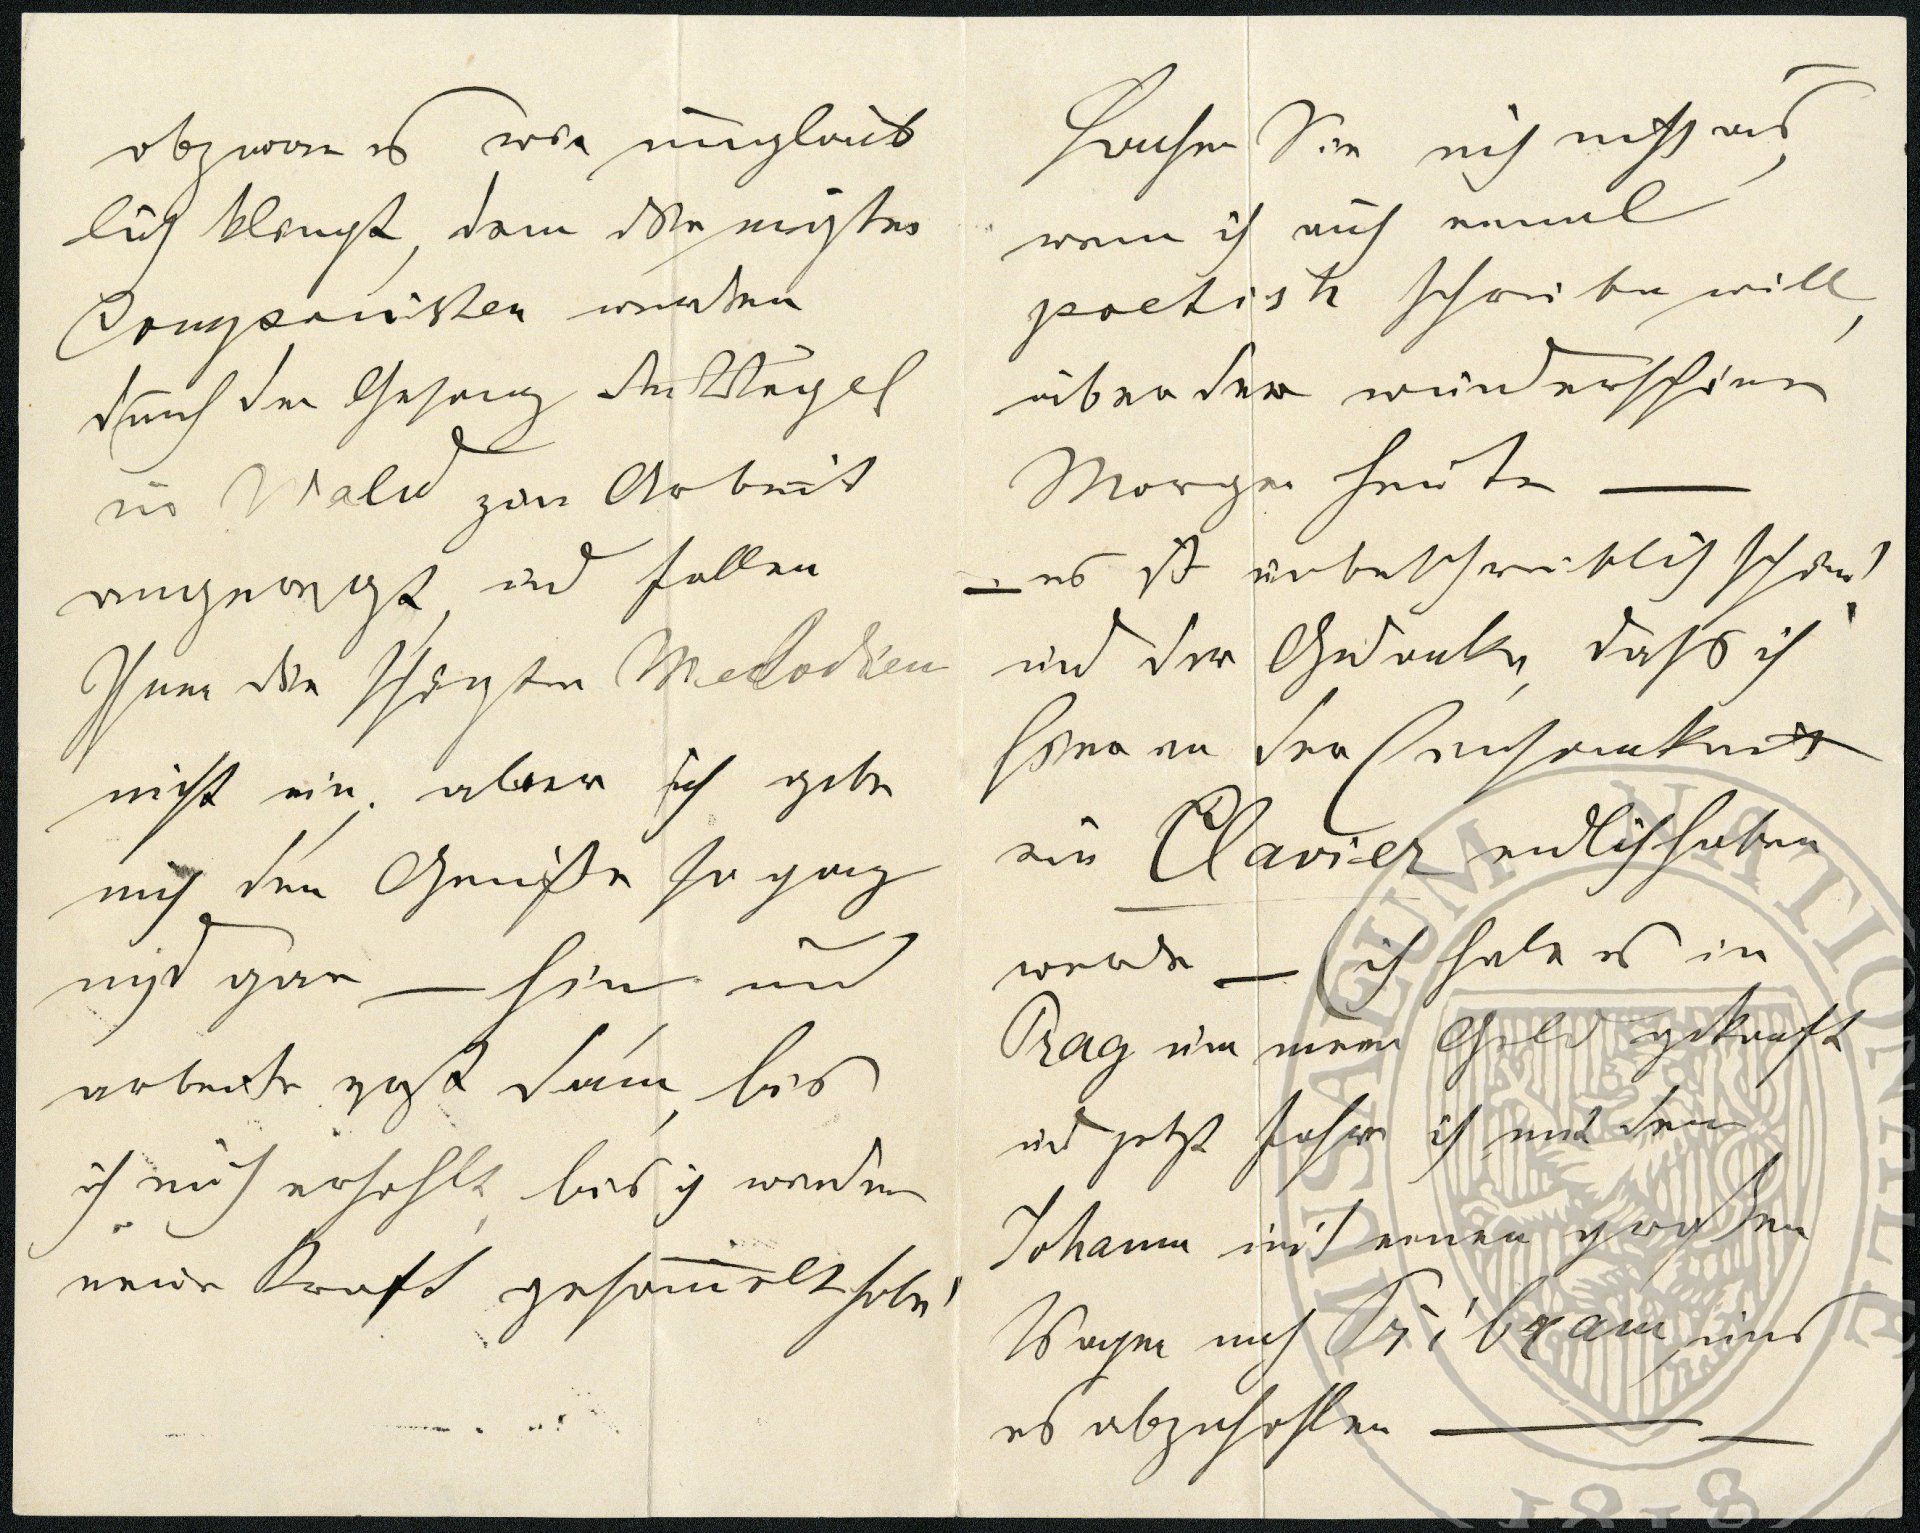 obzwar es wie unglaub
lich klingt, denn die meisten
Componisten werden
durch den Gesang der Vögel
im Wald zur Arbeit
angeregt, und fallen
Ihnen die schönsten Melodien
nicht ein, aber ich gebe
mich dem Genuße so ganz
und gar — hin und
arbeite erst dann, bis
ich mich erhohlt, bis ich wieder
neue Kraft gesammelt habe!
Lachen Sie mich nicht aus,
wenn ich auch einmal
poetisch schreiben will,
über den wunderschönen
Morgen heute —
— es ist unbeschreiblich schön!
und der Gedanke, daß ich
hier in der Einsamkeit
ein Clavier endlich haben
werde — ich habe es in
Prag um mein Geld gekauft
und jetzt fahre ich mit dem
Johann mit einen großen
Wagen nach Přibram, um
es abzuhohlen —
MUSAEUM NATIONALE
1818